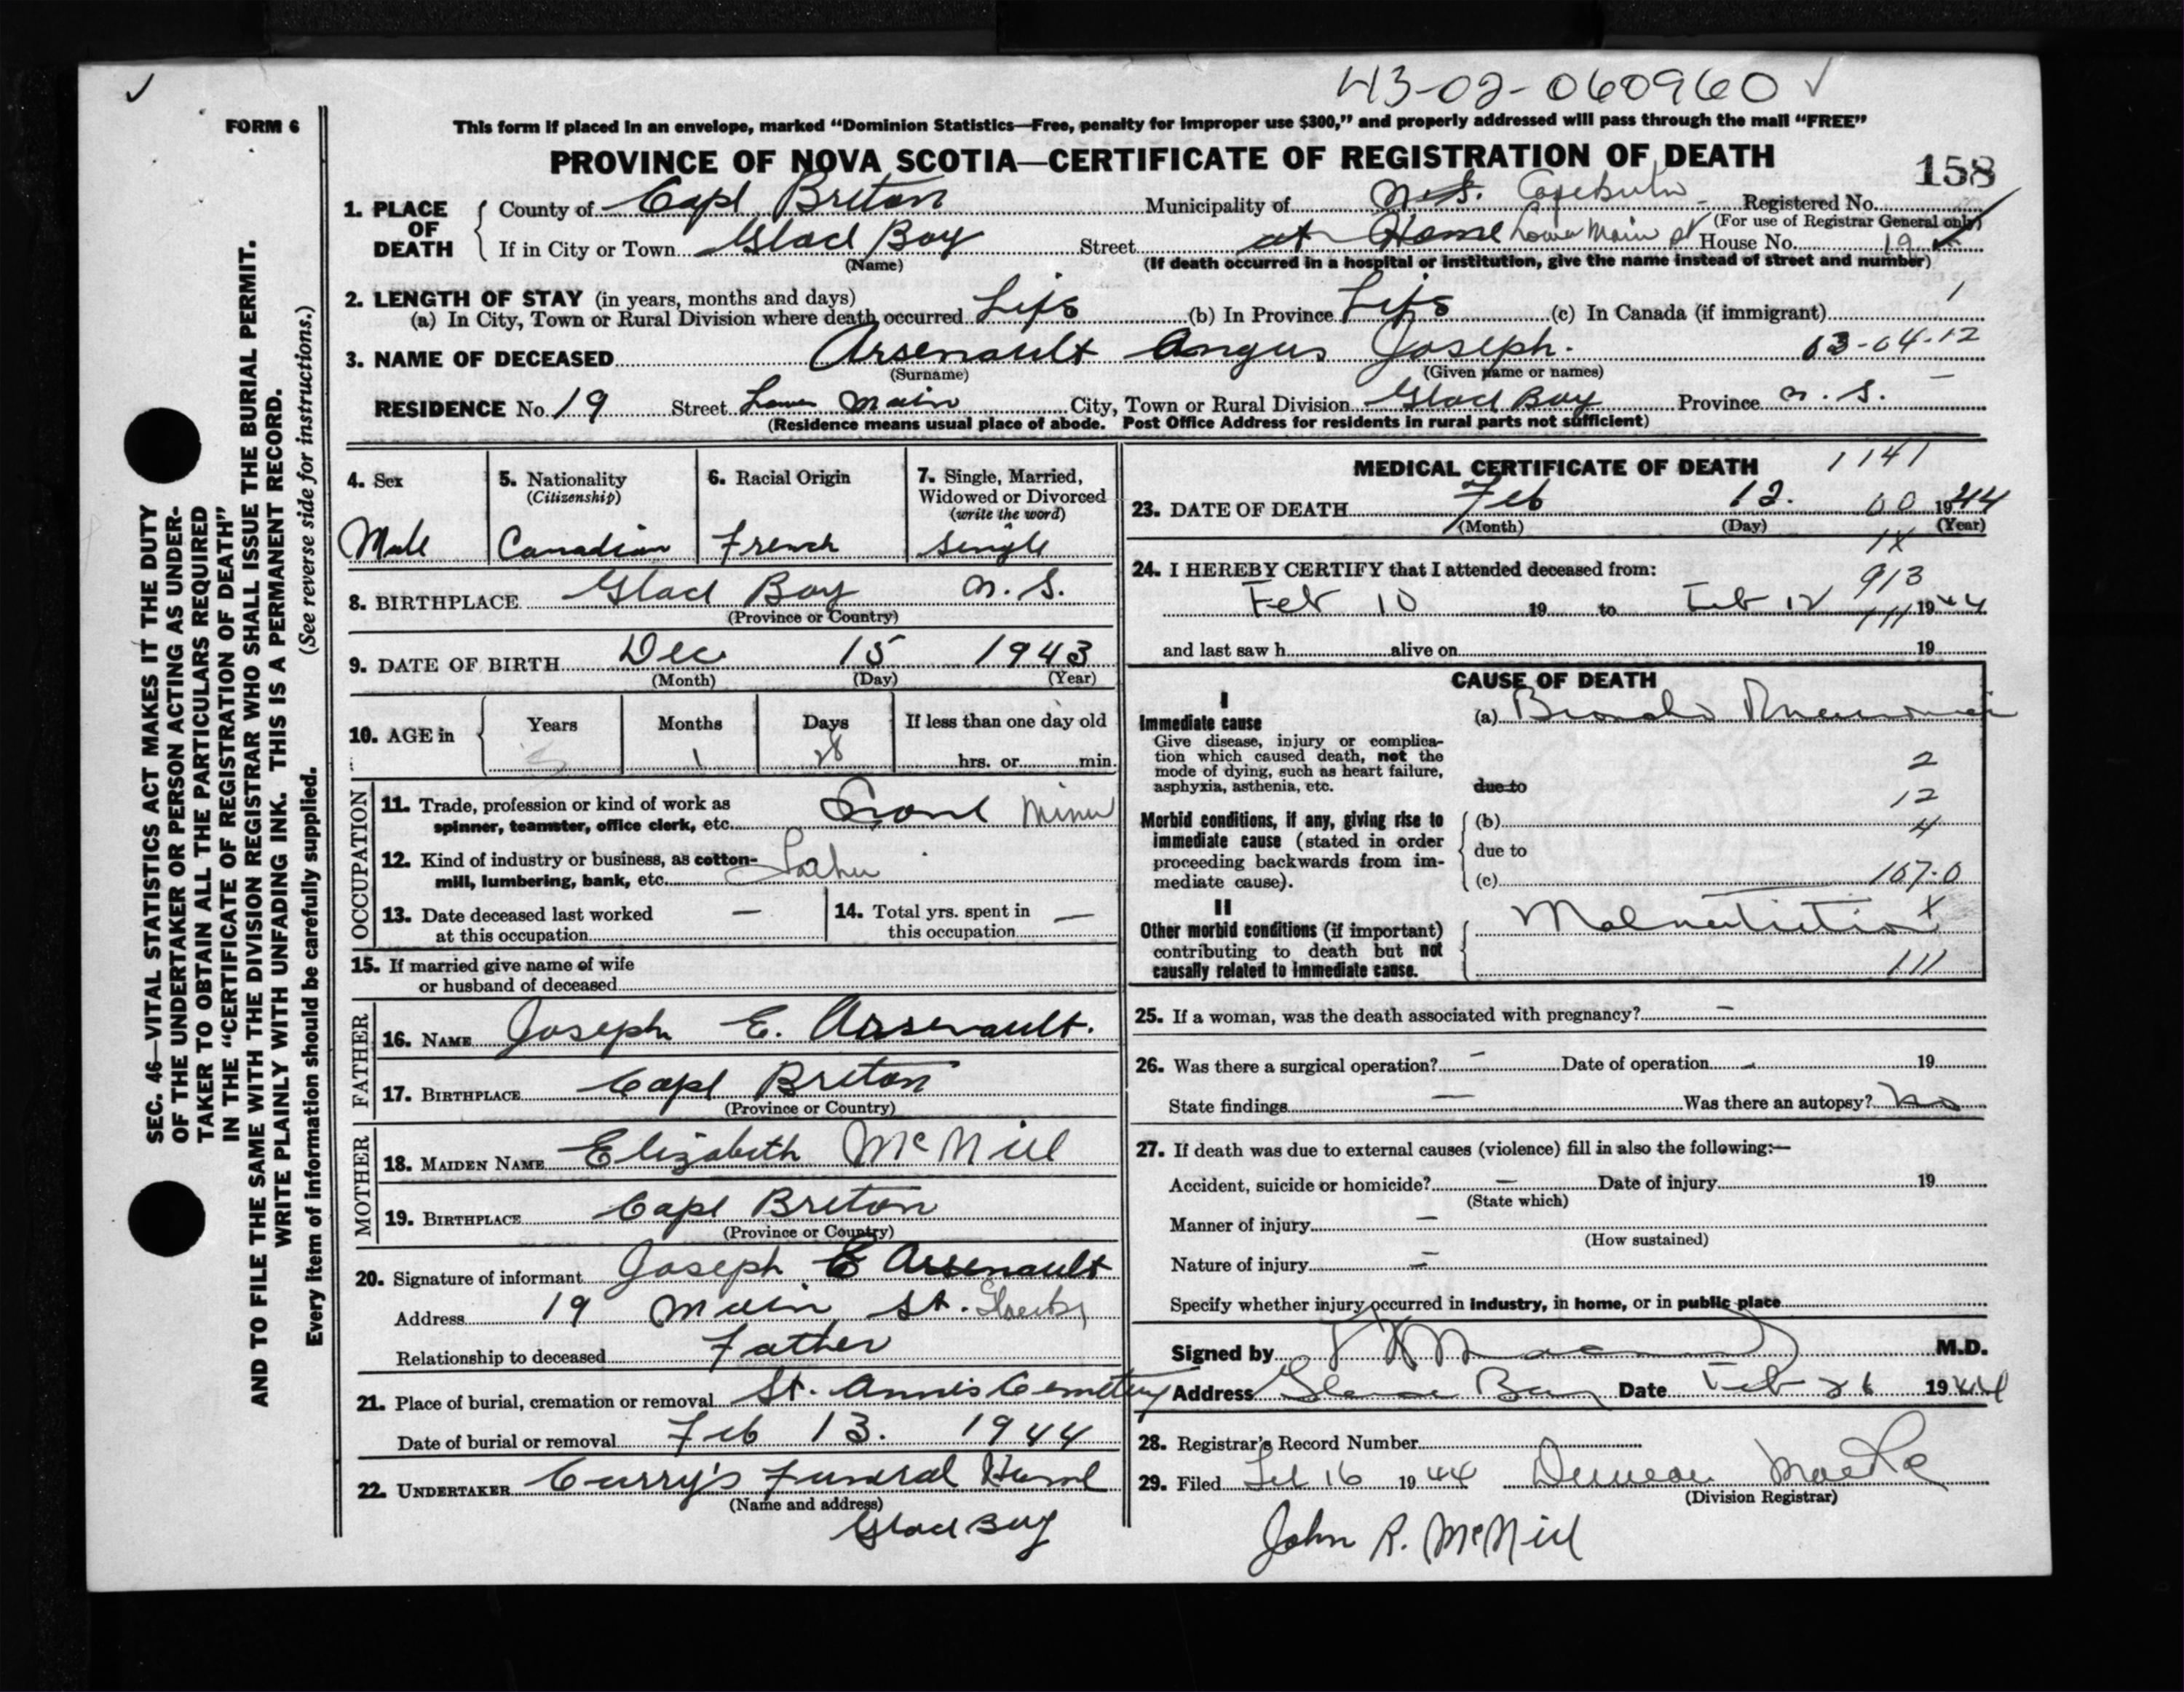 43-02-060960 ✓
✓
FORM 6
This form if placed in an envelope, marked “Dominion Statistics—Free, penalty for improper use $300,” and properly addressed will pass through the mail “FREE”
PROVINCE OF NOVA SCOTIA—CERTIFICATE OF REGISTRATION OF DEATH
158
1. PLACE OF DEATH
County of Cape Breton Municipality of N.S. Registered No.
(For use of Registrar General only)
If in City or Town Glace Bay Street at Home Lower Main St House No. 19
(Name) (If death occurred in a hospital or institution, give the name instead of street and number)
2. LENGTH OF STAY (in years, months and days)
(a) In City, Town or Rural Division where death occurred Life (b) In Province Life (c) In Canada (if immigrant) 1
3. NAME OF DECEASED Arsenault Angus Joseph. 03-04-12
(Surname) (Given name or names)
RESIDENCE No. 19 Street Lower Main City, Town or Rural Division Glace Bay Province N. S.
(Residence means usual place of abode. Post Office Address for residents in rural parts not sufficient)
4. Sex
Male
5. Nationality
(Citizenship)
Canadian
6. Racial Origin
French
7. Single, Married,
Widowed or Divorced
(write the word)
Single
8. BIRTHPLACE Glace Bay N. S.
(Province or Country)
9. DATE OF BIRTH Dec 15 1943
(Month) (Day) (Year)
10. AGE in Years Months Days If less than one day old
1 28 hrs. or min.
OCCUPATION
11. Trade, profession or kind of work as
spinner, teamster, office clerk, etc. Miner
12. Kind of industry or business, as cotton-
mill, lumbering, bank, etc. Father
13. Date deceased last worked
at this occupation —
14. Total yrs. spent in
this occupation —
15. If married give name of wife
or husband of deceased
FATHER
16. NAME Joseph E. Arsenault.
17. BIRTHPLACE Cape Breton
(Province or Country)
MOTHER
18. MAIDEN NAME Elizabeth McNeil
19. BIRTHPLACE Cape Breton
(Province or Country)
20. Signature of informant Joseph E Arsenault
Address 19 Main St. Glace Bay
Relationship to deceased Father
21. Place of burial, cremation or removal St. Anne's Cemetery
Date of burial or removal Feb 13. 1944
22. UNDERTAKER Curry's Funeral Home
(Name and address)
Glace Bay
MEDICAL CERTIFICATE OF DEATH 1141
23. DATE OF DEATH Feb 12. 00 1944
(Month) (Day) (Year)
1X
24. I HEREBY CERTIFY that I attended deceased from:
913
Feb 10 19 to Feb 12 1944
111
and last saw h alive on 19
CAUSE OF DEATH
I
Immediate cause
Give disease, injury or complica-
tion which caused death, not the
mode of dying, such as heart failure,
asphyxia, asthenia, etc.
(a) Broncho Pneumonia
2
due to
12
Morbid conditions, if any, giving rise to
immediate cause (stated in order
proceeding backwards from im-
mediate cause).
(b) 4
due to
(c) 107.0
II
Other morbid conditions (if important)
contributing to death but not
causally related to immediate cause.
Malnutrition X
111
25. If a woman, was the death associated with pregnancy? –
26. Was there a surgical operation? – Date of operation – 19
State findings — Was there an autopsy? No
27. If death was due to external causes (violence) fill in also the following:—
Accident, suicide or homicide? – Date of injury 19
(State which)
Manner of injury –
(How sustained)
Nature of injury –
Specify whether injury occurred in industry, in home, or in public place
Signed by M.D.
Address Glace Bay Date Feb 26 1944
28. Registrar's Record Number
29. Filed Feb 16 1944 Duncan
(Division Registrar)
John R. McNeil
SEC. 46—VITAL STATISTICS ACT MAKES IT THE DUTY
OF THE UNDERTAKER OR PERSON ACTING AS UNDER-
TAKER TO OBTAIN ALL THE PARTICULARS REQUIRED
IN THE “CERTIFICATE OF REGISTRATION OF DEATH”
AND TO FILE THE SAME WITH THE DIVISION REGISTRAR WHO SHALL ISSUE THE BURIAL PERMIT.
WRITE PLAINLY WITH UNFADING INK. THIS IS A PERMANENT RECORD.
Every item of information should be carefully supplied. (See reverse side for instructions.)